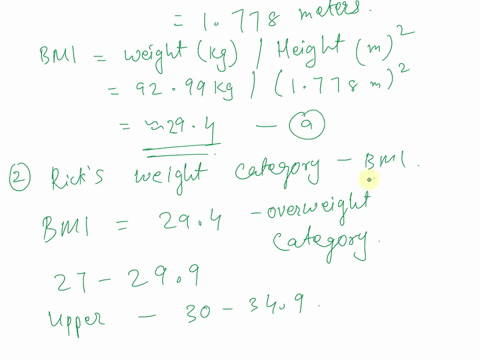 = 1.778 meters.
BMI = weight (kg) / Height (m)²
= 92.99 kg / (1.778 m)²
= ≈29.4 — ⓐ
② Rick's weight category – BMI.
BMI = 29.4 – overweight category.
27 – 29.9
Upper – 30 – 34.9.